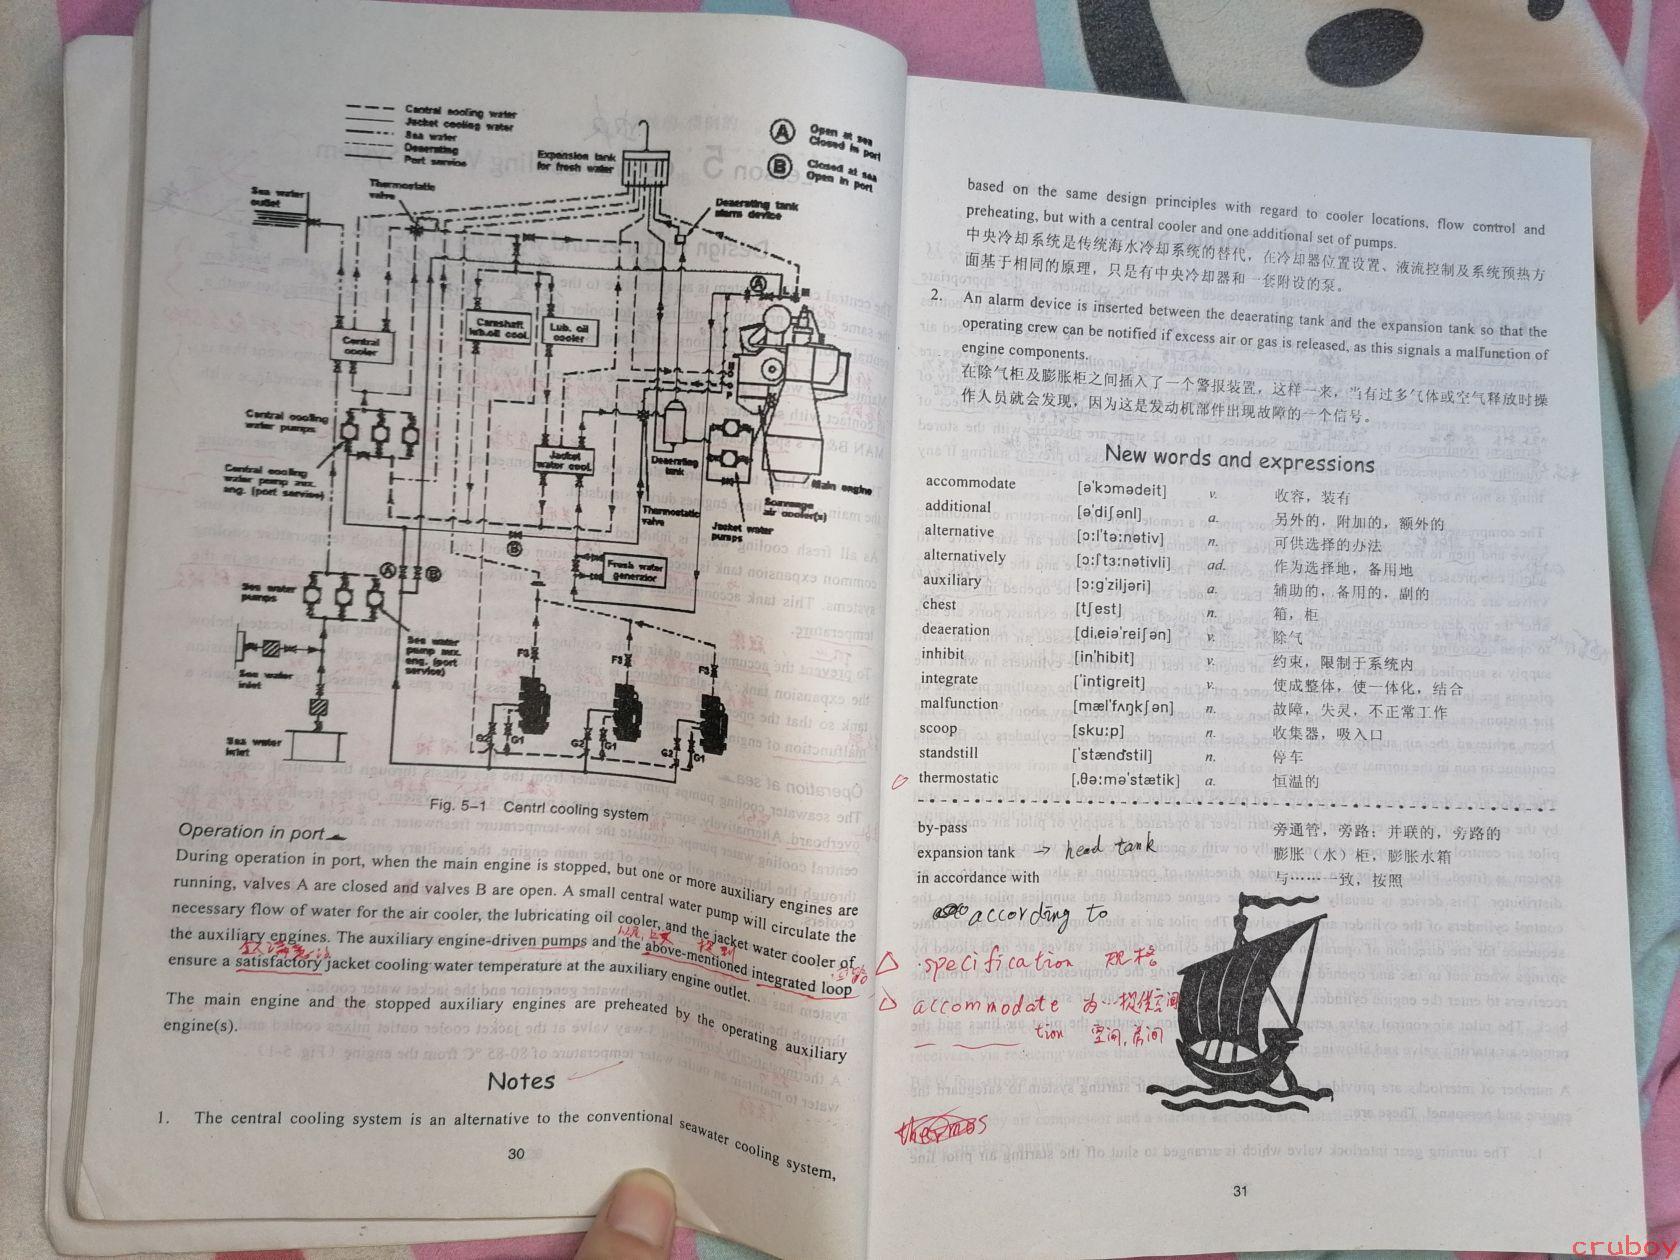 Central cooling water
Jacket cooling water
Sea water
Deaerating
Port service
A Open at sea
Closed in port
B Closed at sea
Open in port
Expansion tank
for fresh water
Sea water
outlet
Thermostatic
valve
Deaerating tank
alarm device
A
Central
cooler
Camshaft
lub.oil cool.
Lub. oil
cooler
Central cooling
water pumps
Central cooling
water pump aux.
eng. (port service)
Jacket
water cool.
Deaerating
tank
Main engine
Scavenge
air cooler(s)
Thermostatic
valve
Jacket water
pumps
B
Fresh water
generator
A B
Sea water
pumps
Sea water
pump aux.
eng. (port
service)
Sea water
inlet
Sea water
inlet
F3
F3
F3
G2 G1
G2 G1
G2 G1
Fig. 5-1 Centrl cooling system
Operation in port
During operation in port, when the main engine is stopped, but one or more auxiliary engines are
running, valves A are closed and valves B are open. A small central water pump will circulate the
necessary flow of water for the air cooler, the lubricating oil cooler, and the jacket water cooler of
the auxiliary engines. The auxiliary engine-driven pumps and the above-mentioned integrated loop
ensure a satisfactory jacket cooling water temperature at the auxiliary engine outlet.
The main engine and the stopped auxiliary engines are preheated by the operating auxiliary
engine(s).
Notes
1. The central cooling system is an alternative to the conventional seawater cooling system,
30
based on the same design principles with regard to cooler locations, flow control and
preheating, but with a central cooler and one additional set of pumps.
中央冷却系统是传统海水冷却系统的替代，在冷却器位置设置、液流控制及系统预热方
面基于相同的原理，只是有中央冷却器和一套附设的泵。
2. An alarm device is inserted between the deaerating tank and the expansion tank so that the
operating crew can be notified if excess air or gas is released, as this signals a malfunction of
engine components.
在除气柜及膨胀柜之间插入了一个警报装置，这样一来，当有过多气体或空气释放时操
作人员就会发现，因为这是发动机部件出现故障的一个信号。
New words and expressions
accommodate [ə'kɔmədeit] v. 收容，装有
additional [ə'diʃənl] a. 另外的，附加的，额外的
alternative [ɔ:l'tə:nətiv] n. 可供选择的办法
alternatively [ɔ:ʃ'tɜ:nətivli] ad. 作为选择地，备用地
auxiliary [ɔ:g'ziljəri] a. 辅助的，备用的，副的
chest [tʃest] n. 箱，柜
deaeration [di,eiə'reiʃən] v. 除气
inhibit [in'hibit] v. 约束，限制于系统内
integrate ['intigreit] v. 使成整体，使一体化，结合
malfunction [mæl'fʌŋkʃən] n. 故障，失灵，不正常工作
scoop [sku:p] n. 收集器，吸入口
standstill ['stændstil] n. 停车
thermostatic [,θə:mə'stætik] a. 恒温的
by-pass 旁通管，旁路；并联的，旁路的
expansion tank → head tank 膨胀（水）柜，膨胀水箱
in accordance with 与……一致，按照
according to
△ specification 规格
△ accommodate 为…提供空间
tion 空间，房间
31
cruboy